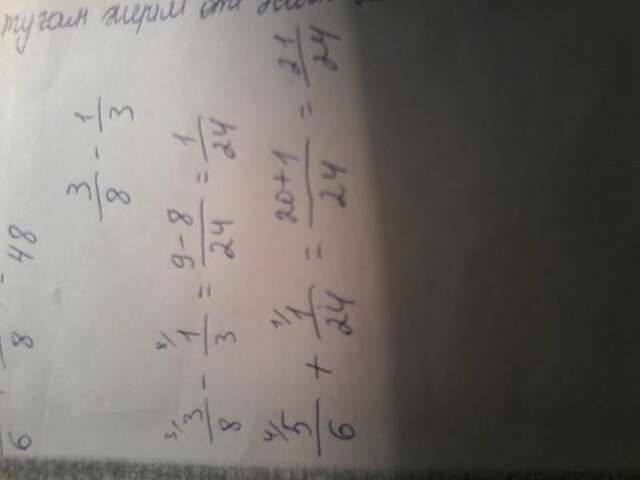 6 8 48
3/8 - 1/3
3/ 3/8 - 8/ 1/3 = 9-8/24 = 1/24
4/ 5/6 + 1/ 1/24 = 20+1/24 = 21/24